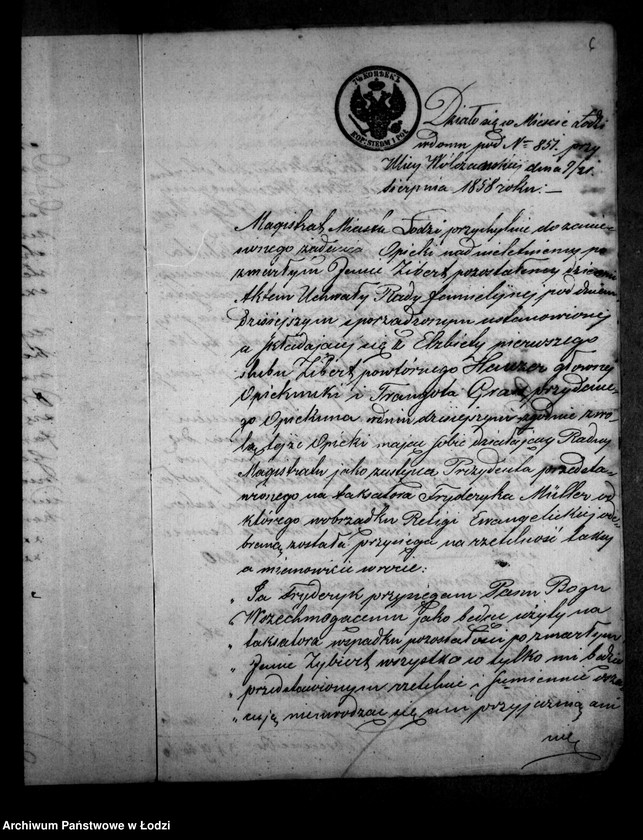 6
7½ KOPIEKI
KOP: SIEDM I PÓŁ
Działo się w Mieście Łodzi
w domu pod No 851. przy
Ulicy Wólczańskiej dnia 9/21.
sierpnia 1858 roku:—
Magistrat Miasta Łodzi przychylnie do zanie-
sionego żądania Opieki nad nieletniemy po
zmarłym Janie Zibert pozostałemy dziećmi
Aktem Uchwały Rady familijnej pod dniem
dzisiejszym sporządzonym ustanowionej
a składającej się z Elżbiety pierwszego
ślubu Zibert powtórnego Hauzer głównej
Opiekunki i Traugota Gram przydane-
go Opiekuna w dniu dzisiejszym zgodnie
tejże Opieki mając sobie działający Radny
Magistratu jako zastępca Prezydenta przedsta-
wionego na taksatora Fryderyka Müller od
którego w obrządku Religii Ewangelickiej ode-
braną została przysięga na rzetelność taksy
a mianowicie w rocie:
„Ja Fryderyk przysięgam Panu Bogu
Wszechmogącemu jako będąc użyty na
„taksatora w spadku pozostałości po zmarłym
„Janie Zybiert wszystko co tylko mi będzie
„przedstawionym rzetelnie i sumiennie osza-
„cuję nieuwodząc się ani przyjaźnią ani
nie
Archiwum Państwowe w Łodzi